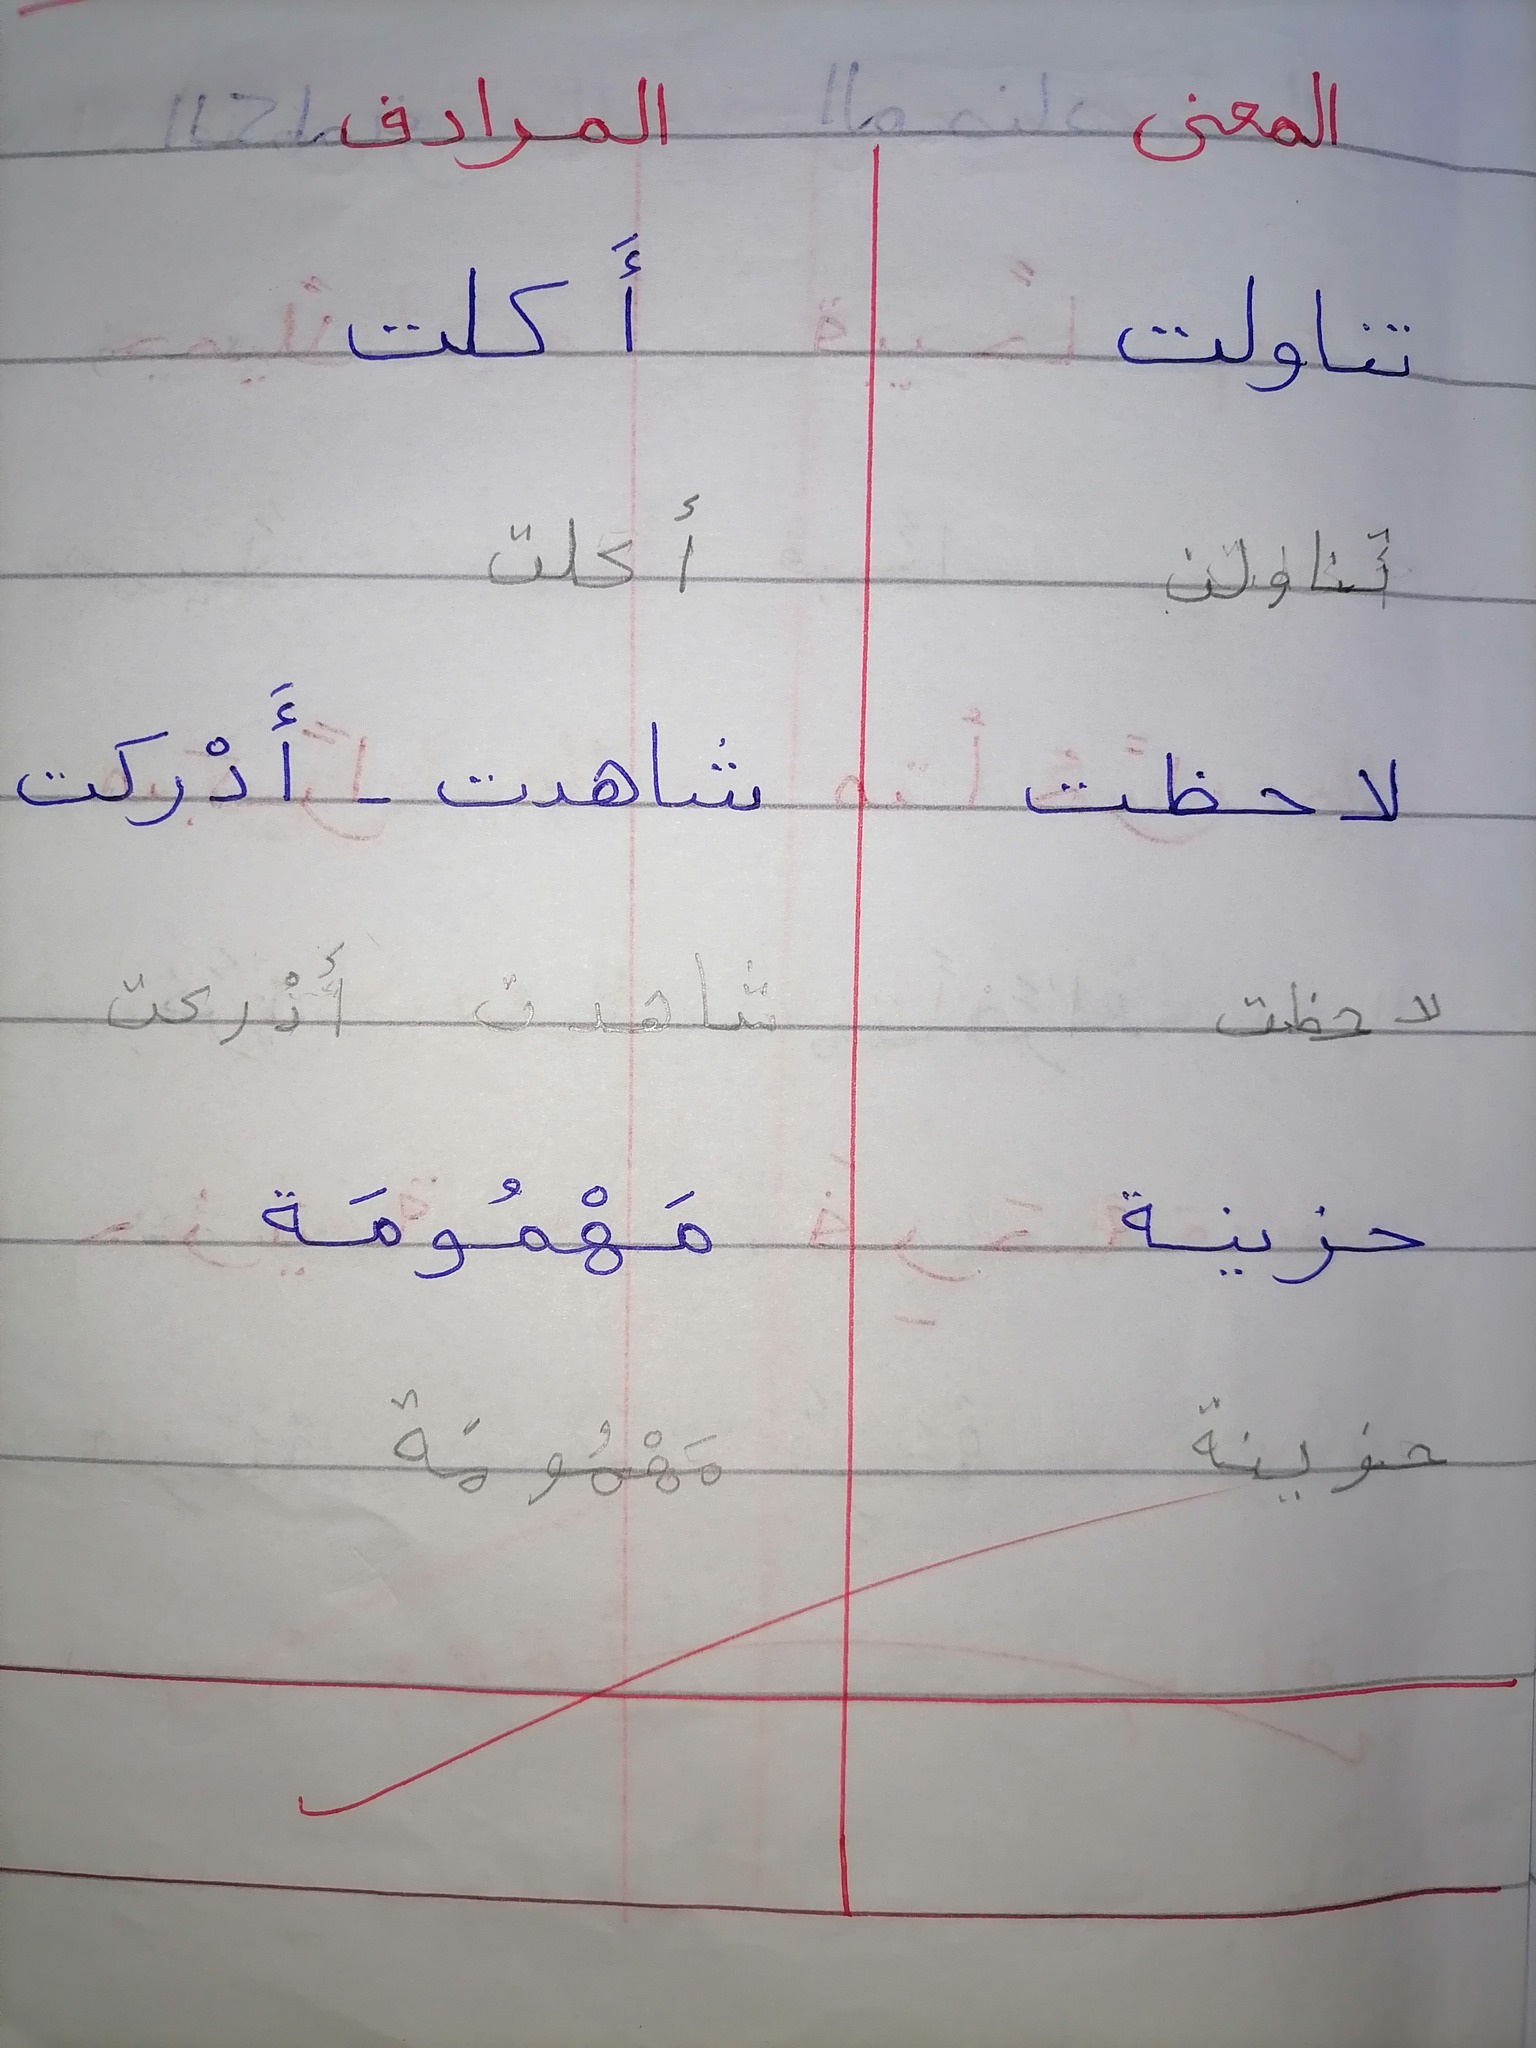 المعنى المرادف
تناولت أَكلت
تناولت أكلت
لاحظت شاهدت - أَدْركت
لاحظت شاهدت أَدْركت
حزينة مَهْمُومَة
حزينة مَهْمُومَة